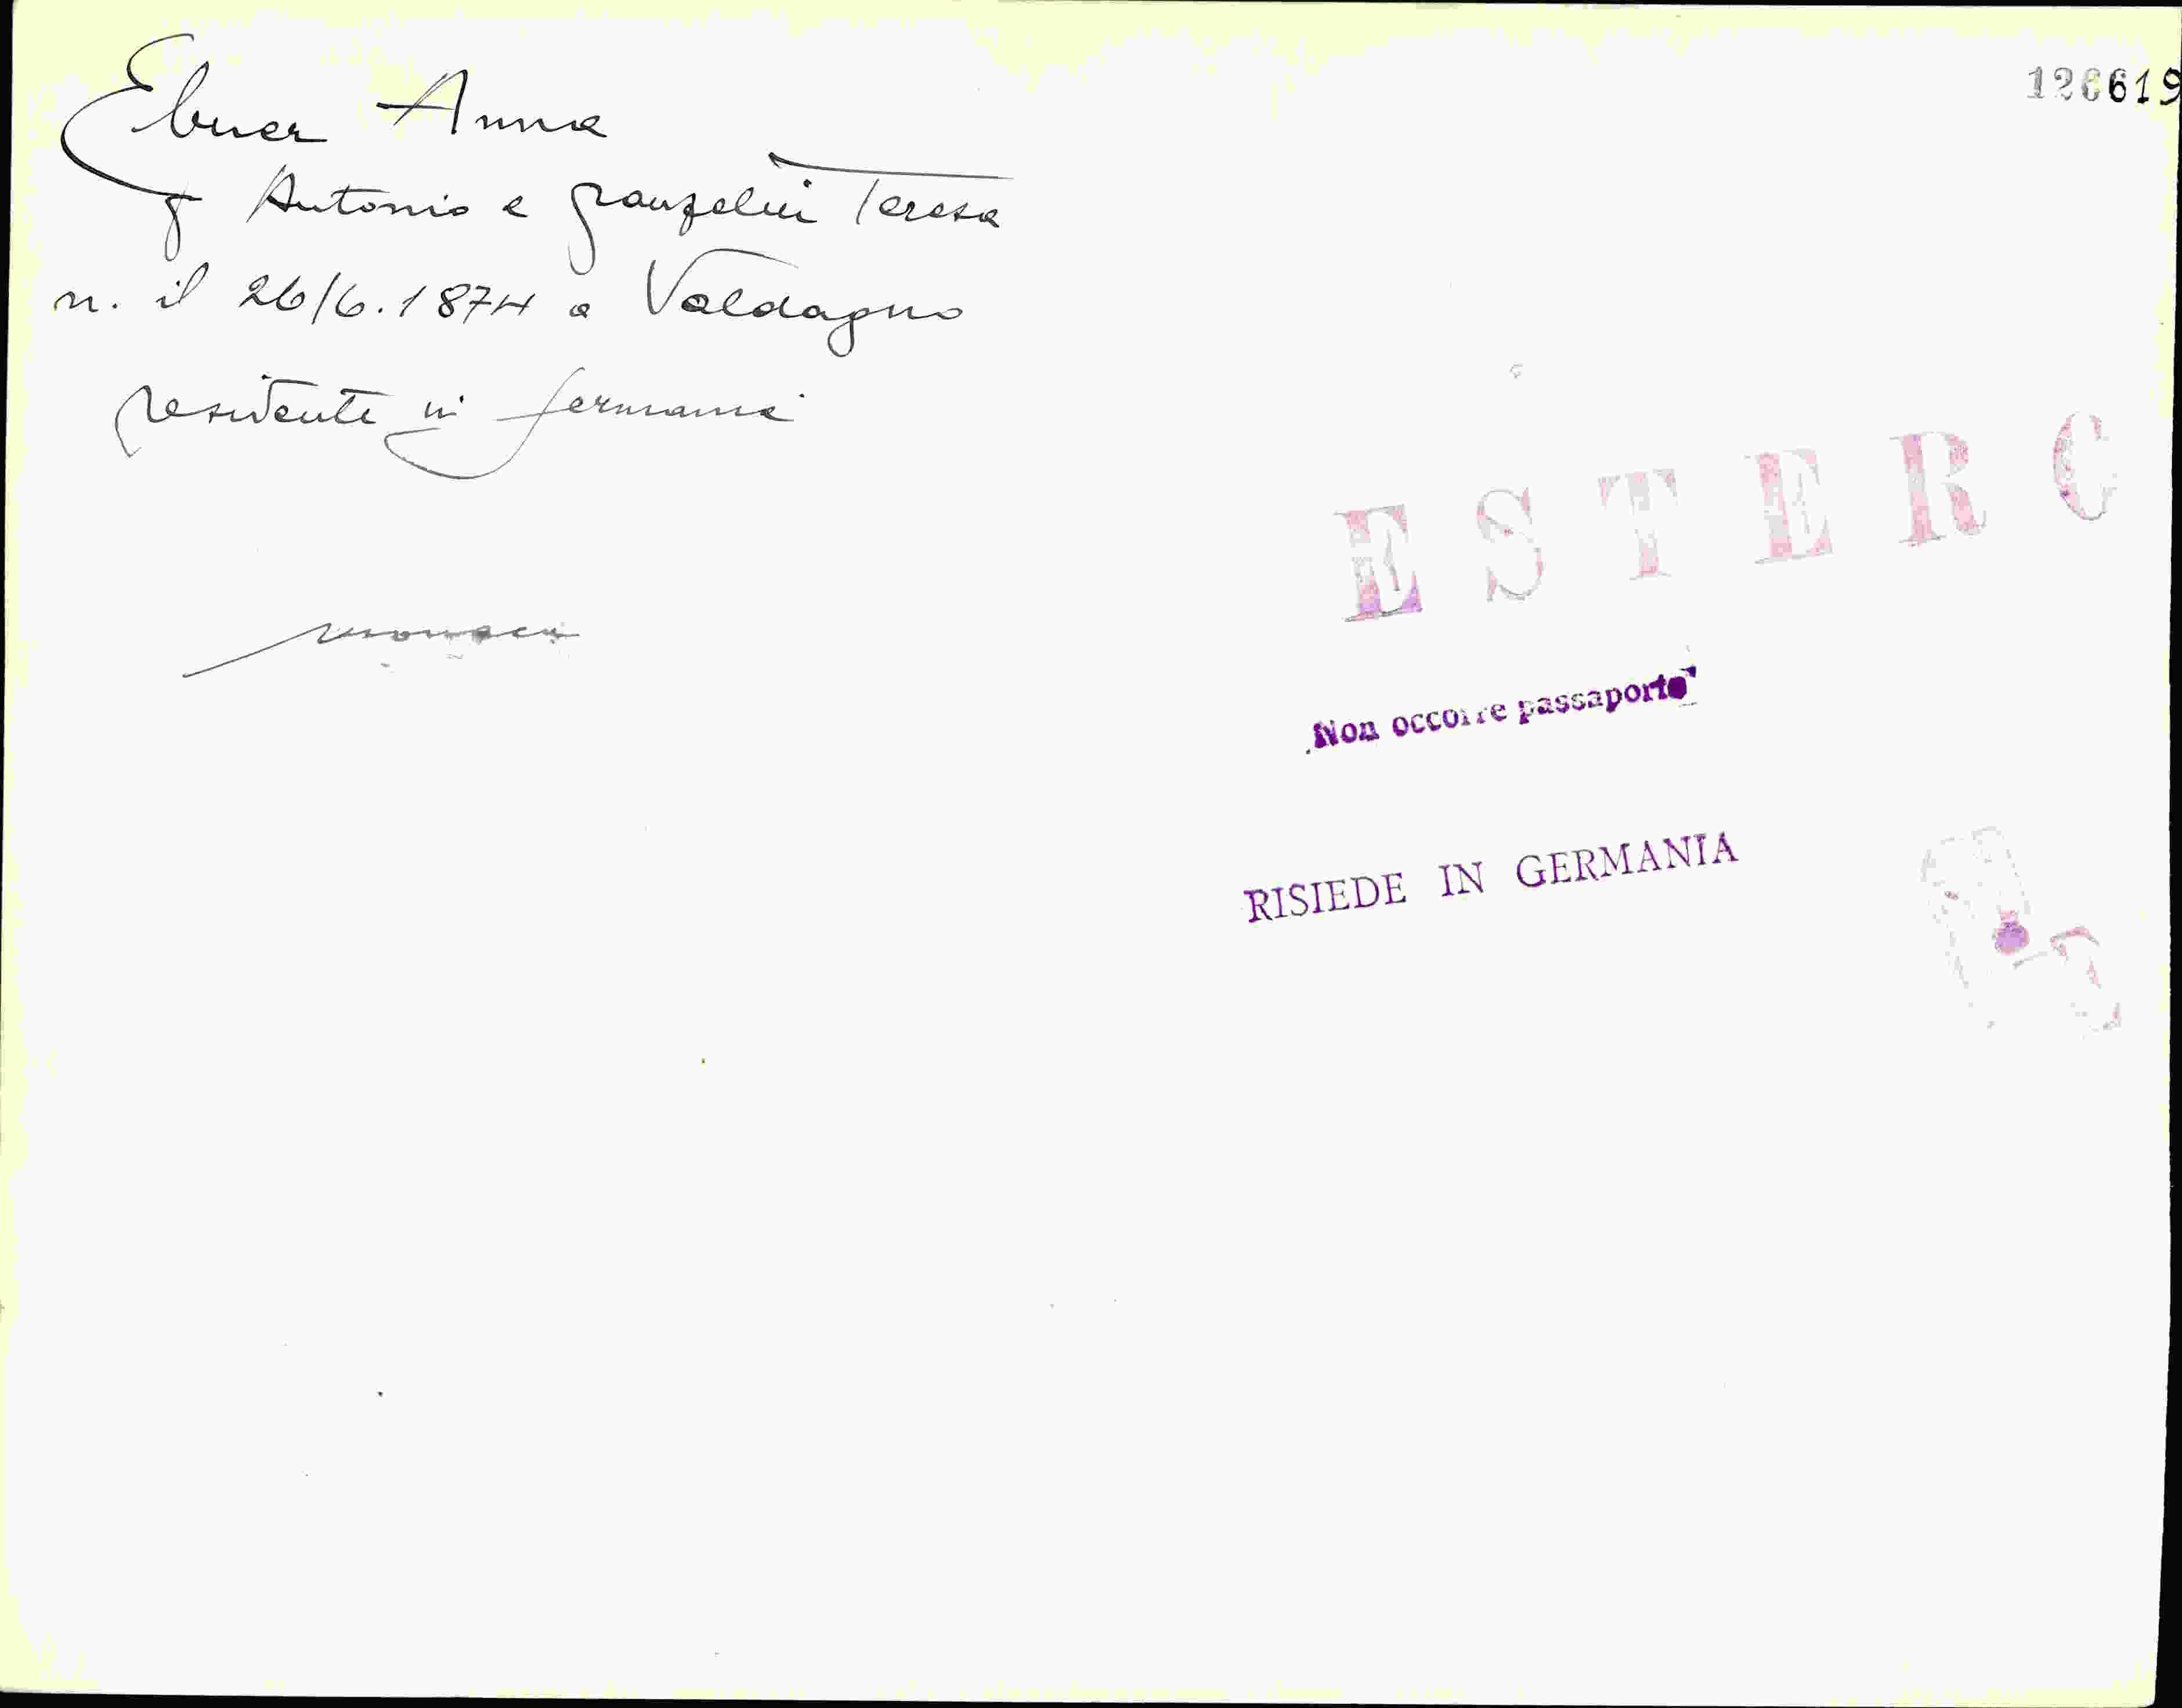 126619
Ebner Anna
f Antonio e Granzelin Teresa
n. il 26/6.1874 a Valdagno
residente in Germania
ESTERO
Non occorre passaporto
RISIEDE IN GERMANIA